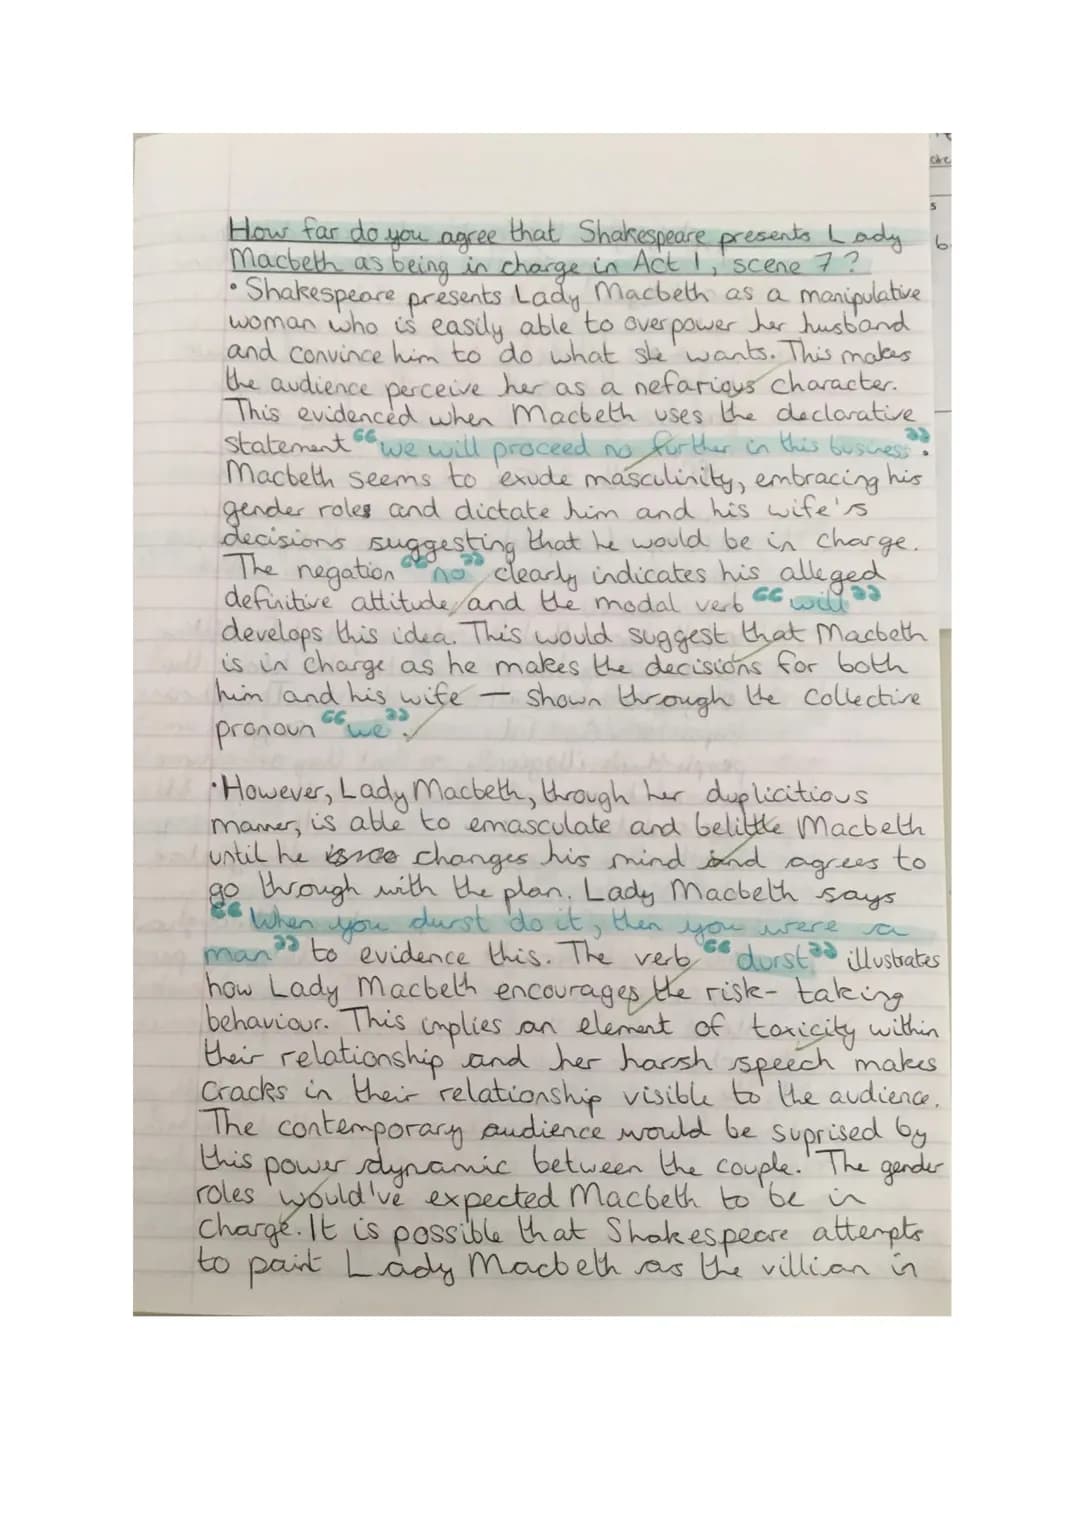 How far do you agree that Shakespeare presents Lady
Macbeth as being in charge in Act 1, scene 7?
• Shakespeare presents Lady Macbeth as a manipulative
woman who is easily able to overpower her husband
and convince him to do what she wants. This makes
the audience perceive her as a nefarious character.
This evidenced when Macbeth uses the declarative
statement "we will proceed no further in this business".
Macbeth seems to exude masculinity, embracing his
gender roles and dictate him and his wife's
decisions suggesting that he would be in charge.
The negation "no" clearly indicates his alleged
definitive attitude, and the modal verb "will"
develops this idea. This would suggest that Macbeth
is in charge as he makes the decisions for both
him and his wife – shown through the collective
pronoun "we".
• However, Lady Macbeth, through her duplicitious
manner, is able to emasculate and belittle Macbeth
until he changes his mind and agrees to
go through with the plan. Lady Macbeth says
"When you durst do it, then you were a
man" to evidence this. The verb "durst" illustrates
how Lady Macbeth encourages the risk-taking
behaviour. This implies an element of toxicity within
their relationship and her harsh speech makes
cracks in their relationship visible to the audience.
The contemporary audience would be suprised by
this power dynamic between the couple. The gender
roles would've expected Macbeth to be in
charge. It is possible that Shakespeare attempts
to paint Lady Macbeth as the villian in